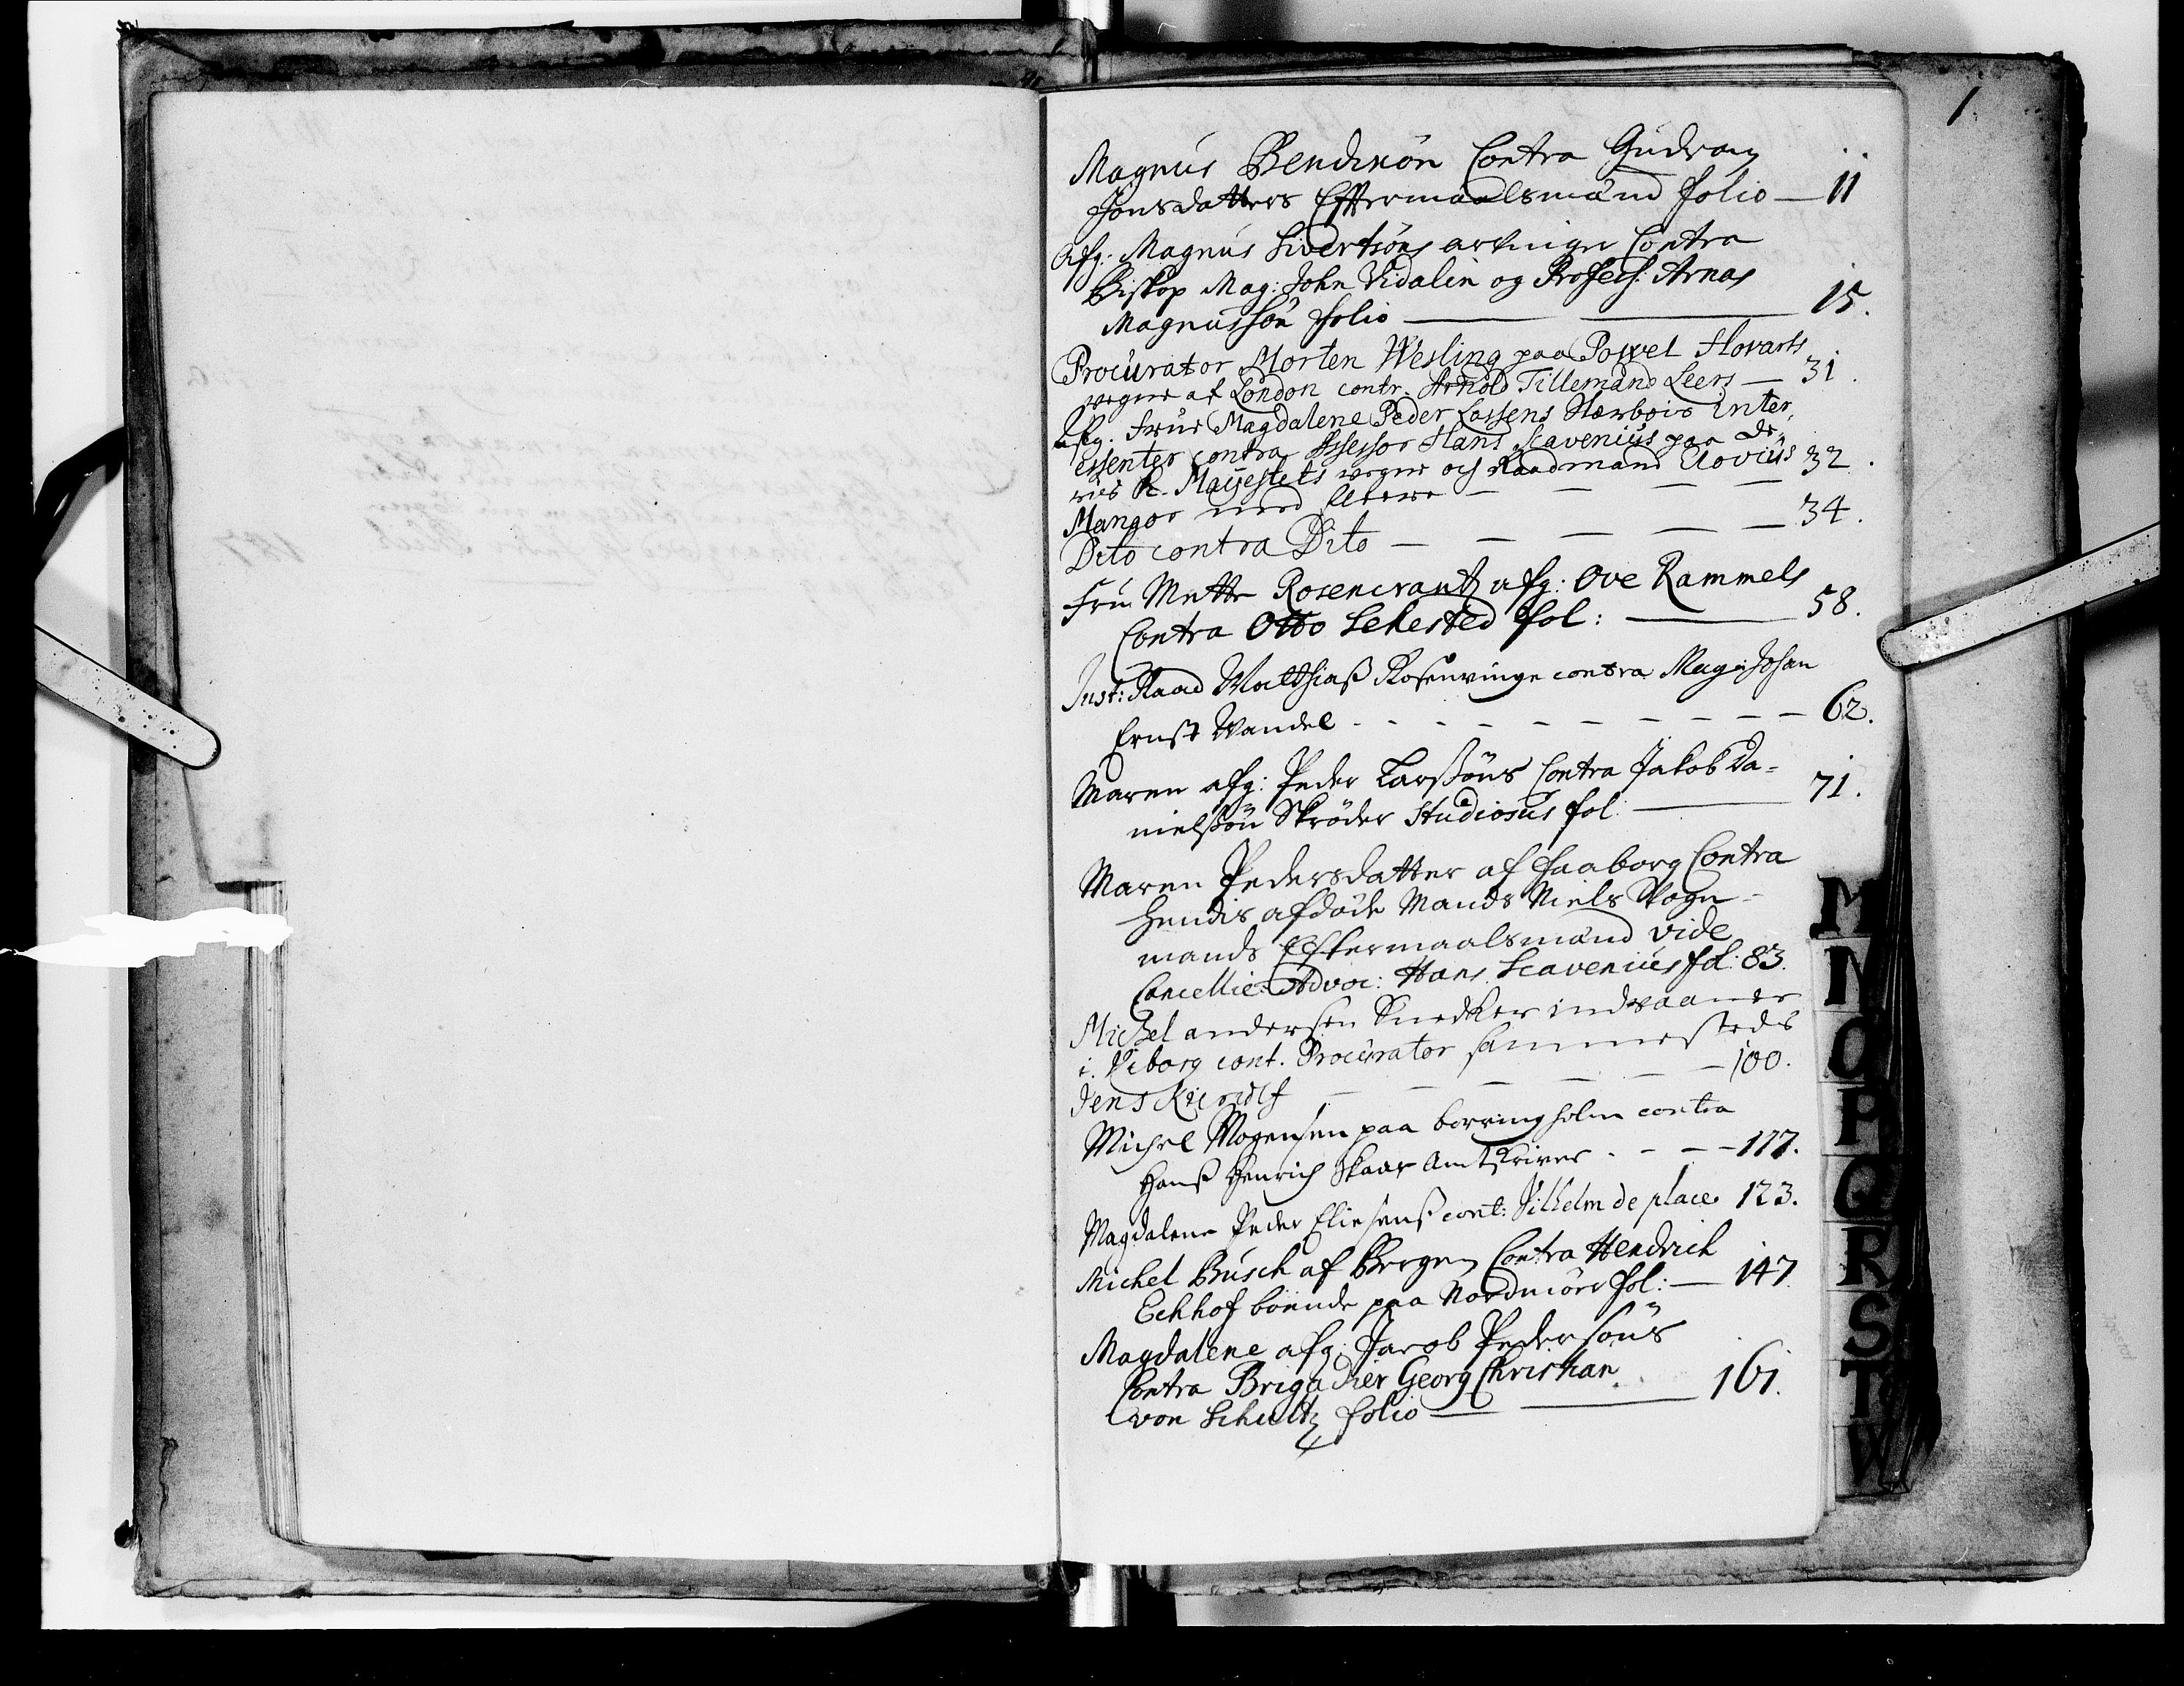 1.
Magnus Bendixön Contra Gudrun
Jonsdatters Effermaalsmænd folio — 11
Afg: Magnus Sivertsöns arvinger Contra
Biskop Mag: John Vidalin og Profess: Arnas
Magnussön folio — 15.
Procurator Morten Wesling paa Powel Hovarts
vegne af London contr. Arnold Tillemand Leers — 31.
Afg. Frue Magdalene Peder Lassens Stærbois Inter,
essenter contra Assessor Hans Scavenius paa De,
ris K. Mayestets vegne och Raadmand Clovius 32.
Mangor med flere — — — —
Dito contra Dito — — — — — 34.
Fru Mette Rosencrantz afg: Ove Rammels
Contra Otto Sehested fol: — 58.
Just: Raad Matthias Rosenvinge contra Mag: Johan
Ernst Wandel - - - - - - - - - 62.
Maren afg: Peder Larssöns Contra Jakob Da=
nielssön Skröder Studiosus fol: — 71.
Maren Pedersdatter af Faaborg Contra
hendis afdöde Mands Niels Skogn-
mands Effermaalsmænd vide
Cancellie: Advoc: Hans Scavenius fol: 83.
Michel andersen Snedker indvaaner
i Viborg cont. Procurator sammesteds
Jens — — — — — 100.
Michel Mogensen paa borringholm contra
Hans Henrich Skaar Amtskriver - - - 117.
Magdalene Peder Eliesens cont: Vilhelm de place 123.
Michel Busch af Bergen Contra Hendrich
Eckhof boende paa Nordmöre fol: — 147
Magdalene afg: Jacob Pedersöns
Contra Brigadier Georg Christian
von Schultz folio — 161.
M
N
O
P
Q
R
S
T
W